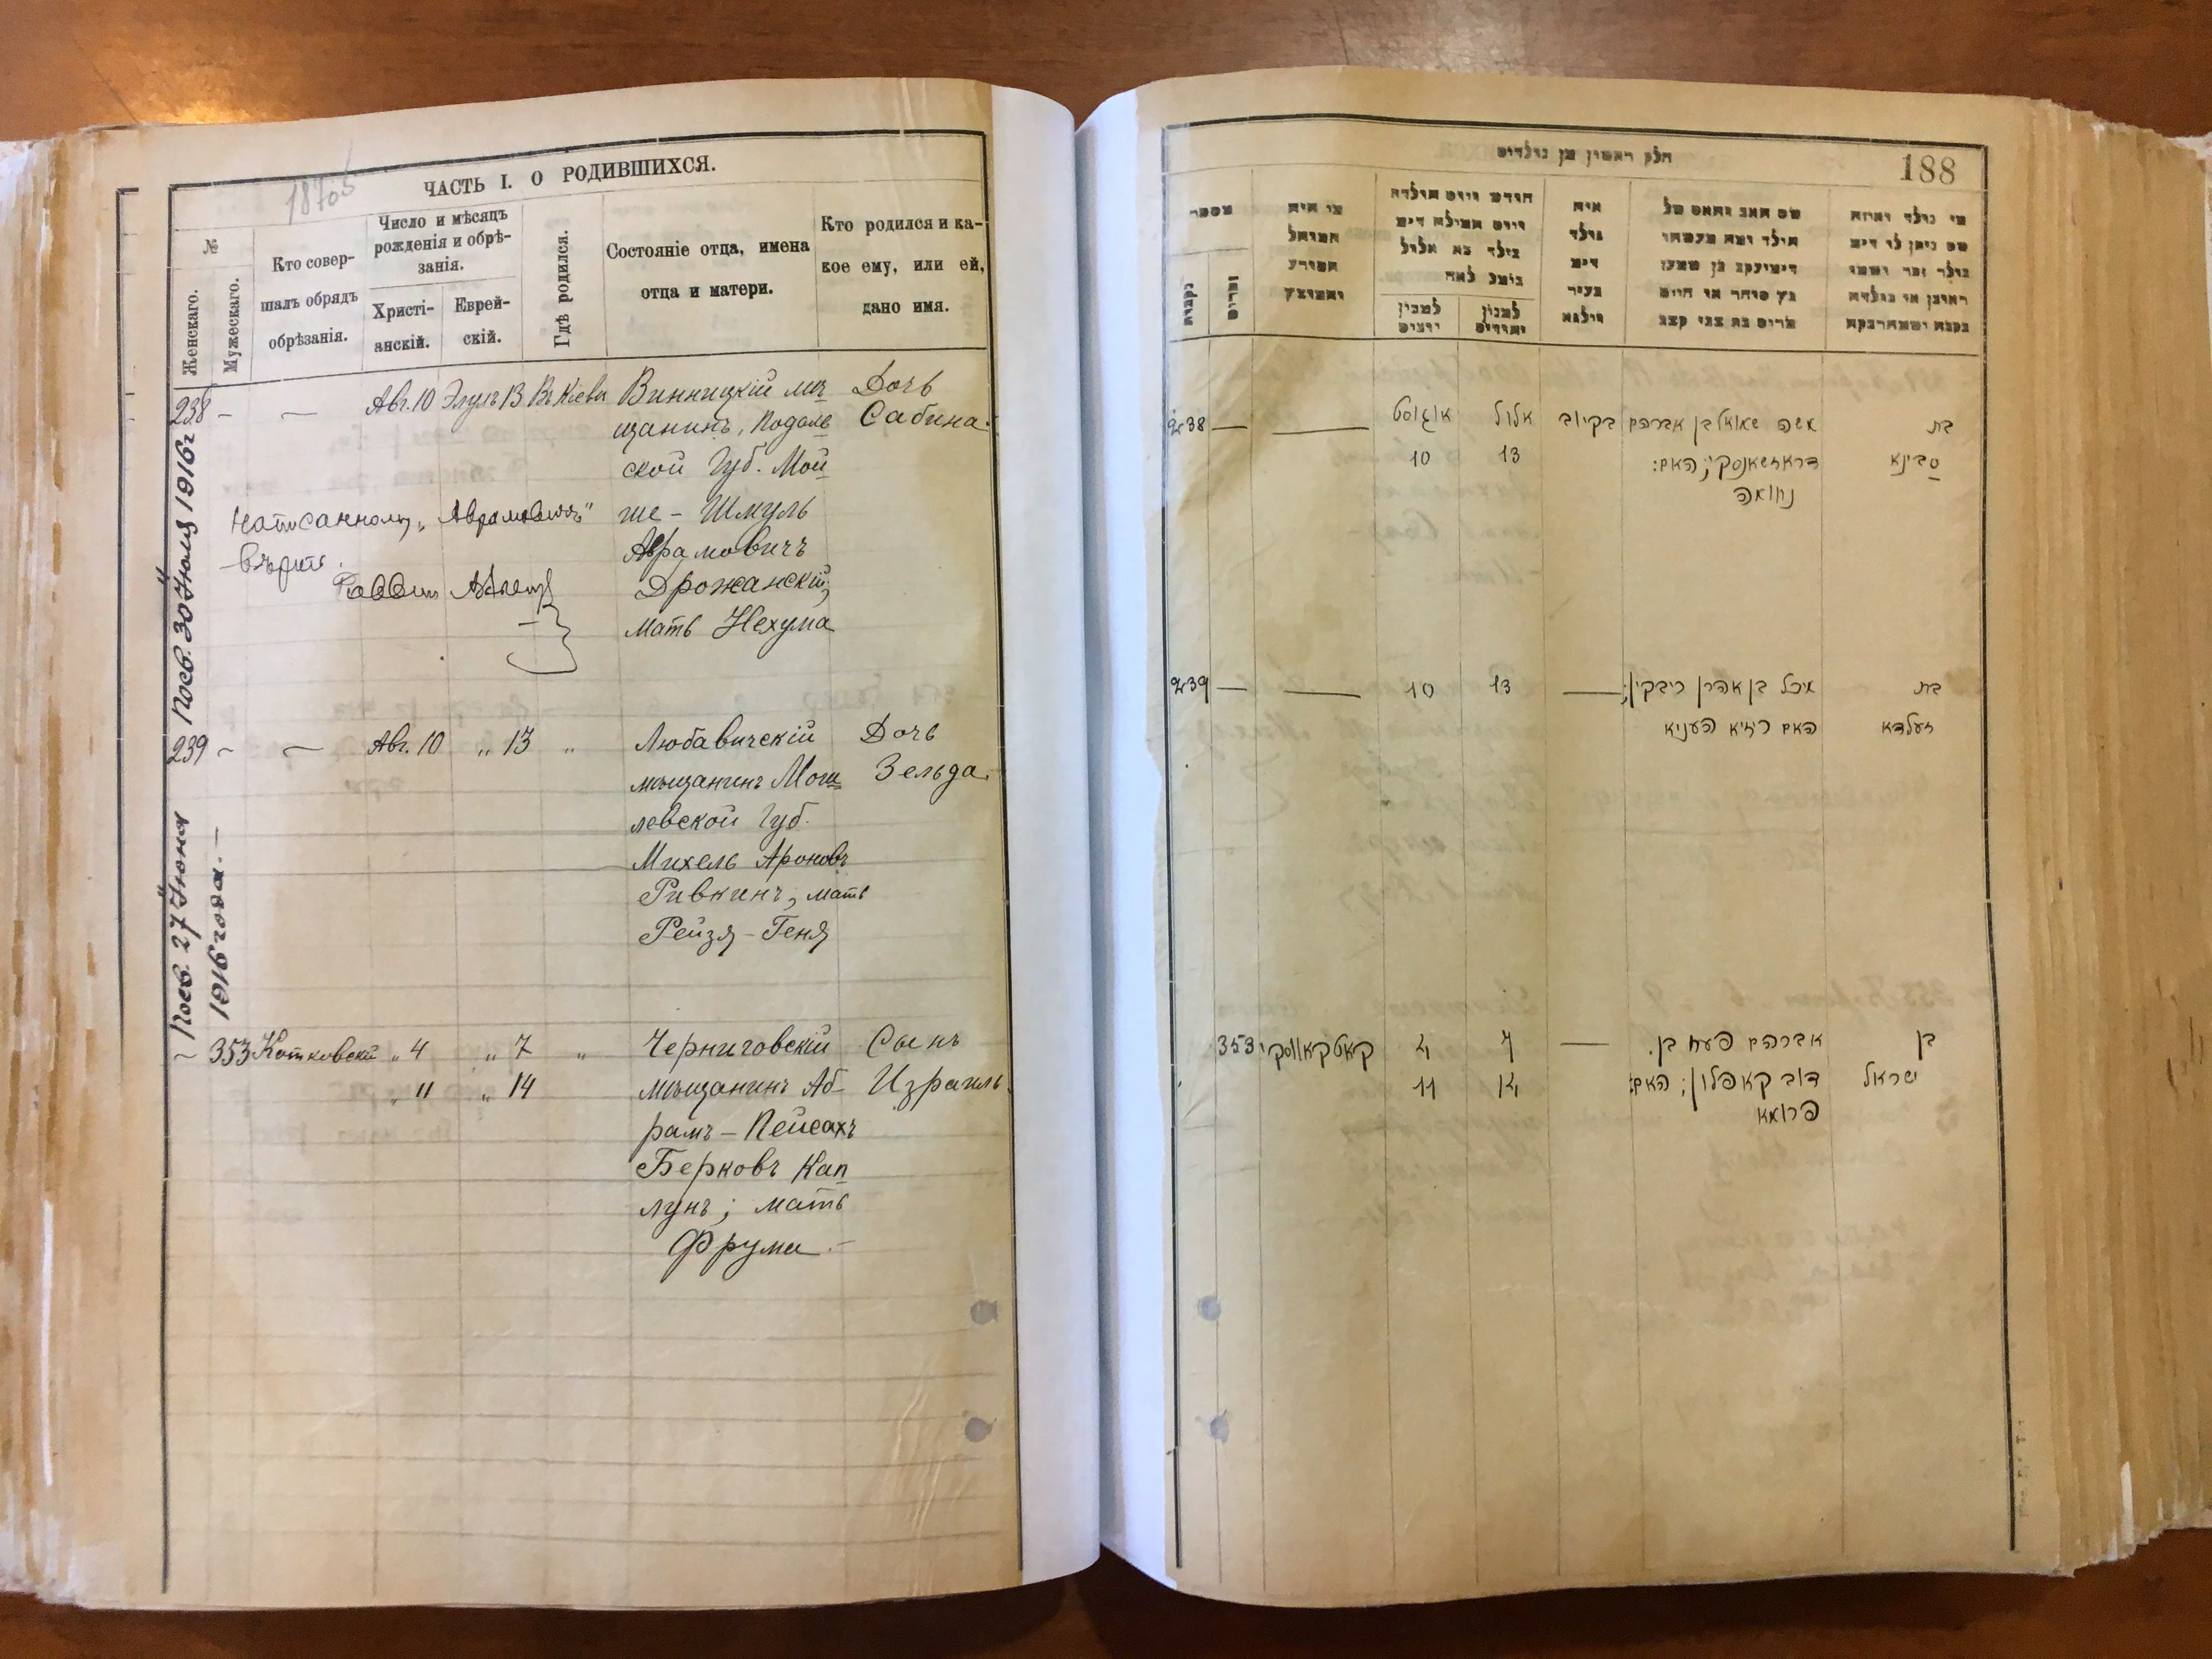 ЧАСТЬ I. О РОДИВШИХСЯ.
№
Женскаго.
Мужескаго.
Кто совер-
шалъ обрядъ
обрѣзанія.
Число и мѣсяцъ
рожденія и обрѣ-
занія.
Христі-
анскій.
Еврей-
скій.
Гдѣ родился.
Состояніе отца, имена
отца и матери.
Кто родился и ка-
кое ему, или ей,
дано имя.
238 – — Авг. 10 Элулъ 13 Въ Кіевѣ Винницкій мѣ Дочь
щанинъ, Подоль Сабина.
ской Губ. Мой
ше – Шмуль
Аврамовичъ
Дрожанскій;
мать Нехума
Написанному „Аврамовичъ"
вѣрить.
Раввинъ
Посв. 30 Іюля 1916 г
239 – — Авг. 10 „ 13 „ Любавичскій Дочь
мѣщанинъ Моги Зельда.
левской Губ.
Михель Ароновъ
Ривкинъ, мать
Рейзя – Геня
Посв. 27 Іюня
1916 года. —
– 353 Котковскій „ 4 „ 7 „ Черниговскій Сынъ
„ 11 „ 14 мѣщанинъ Аб- Израиль.
рамъ – Пейсахъ
Берковъ Кап
лунъ; мать
Фрума. –
188
חלק ראשון מן נולדים
מספר
נקבות
זכרים
מי היה
המוהל
חודש ויום הולדה
ויום המילה
למנין
יוונים
למנין
יהודים
איה
נולד
בעיר
ווילנא
שם האב והאם של
מי נולד ואיזה
שם ניתן לו
238 — — אוגוסט אלול בקיוב משה שמואל בן אברהם בת
10 13 דראזשאנסקי; האם: סבינא
נחומה
239 — — 10 13 — מיכל בן אהרן ריבקין; בת
האם רייזא העניא זעלדא
353 קאטקאווסקי 4 7 — אברהם פסח בן בן
11 14 דוב קאפלון; האם: ישראל
פרומא